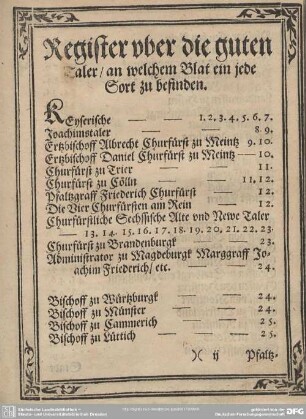 Register vber die guten
Taler / an welchem Blat ein jede
Sort zu befinden.
KEyserische — — 1. 2. 3. 4. 5. 6. 7.
Joachimstaler — — 8 9.
Ertzbischoff Albrecht Churfürst zu Meintz 9. 10.
Ertzbischoff Daniel Churfürst zu Meintz — 10.
Churfürst zu Trier — — 11.
Churfürst zu Cölln — — 11, 12.
Pfaltzgraff Friederich Churfürst — 12.
Die Vier Churfürsten am Rein — 12.
Churfürstliche Sechssische Alte vnd Newe Taler
— 13. 14. 15. 16. 17. 18. 19. 20. 21. 22. 23.
Churfürst zu Brandenburgk — 23.
Administrator zu Magdeburgk Marggraff Jo-
achim Friederich / etc. — — 24.
Bischoff zu Würtzburgk — — 24.
Bischoff zu Münster — — 24.
Bischoff zu Cammerich — — 25.
Bischoff zu Lüttich — — 25.
)( ij Pfaltz-